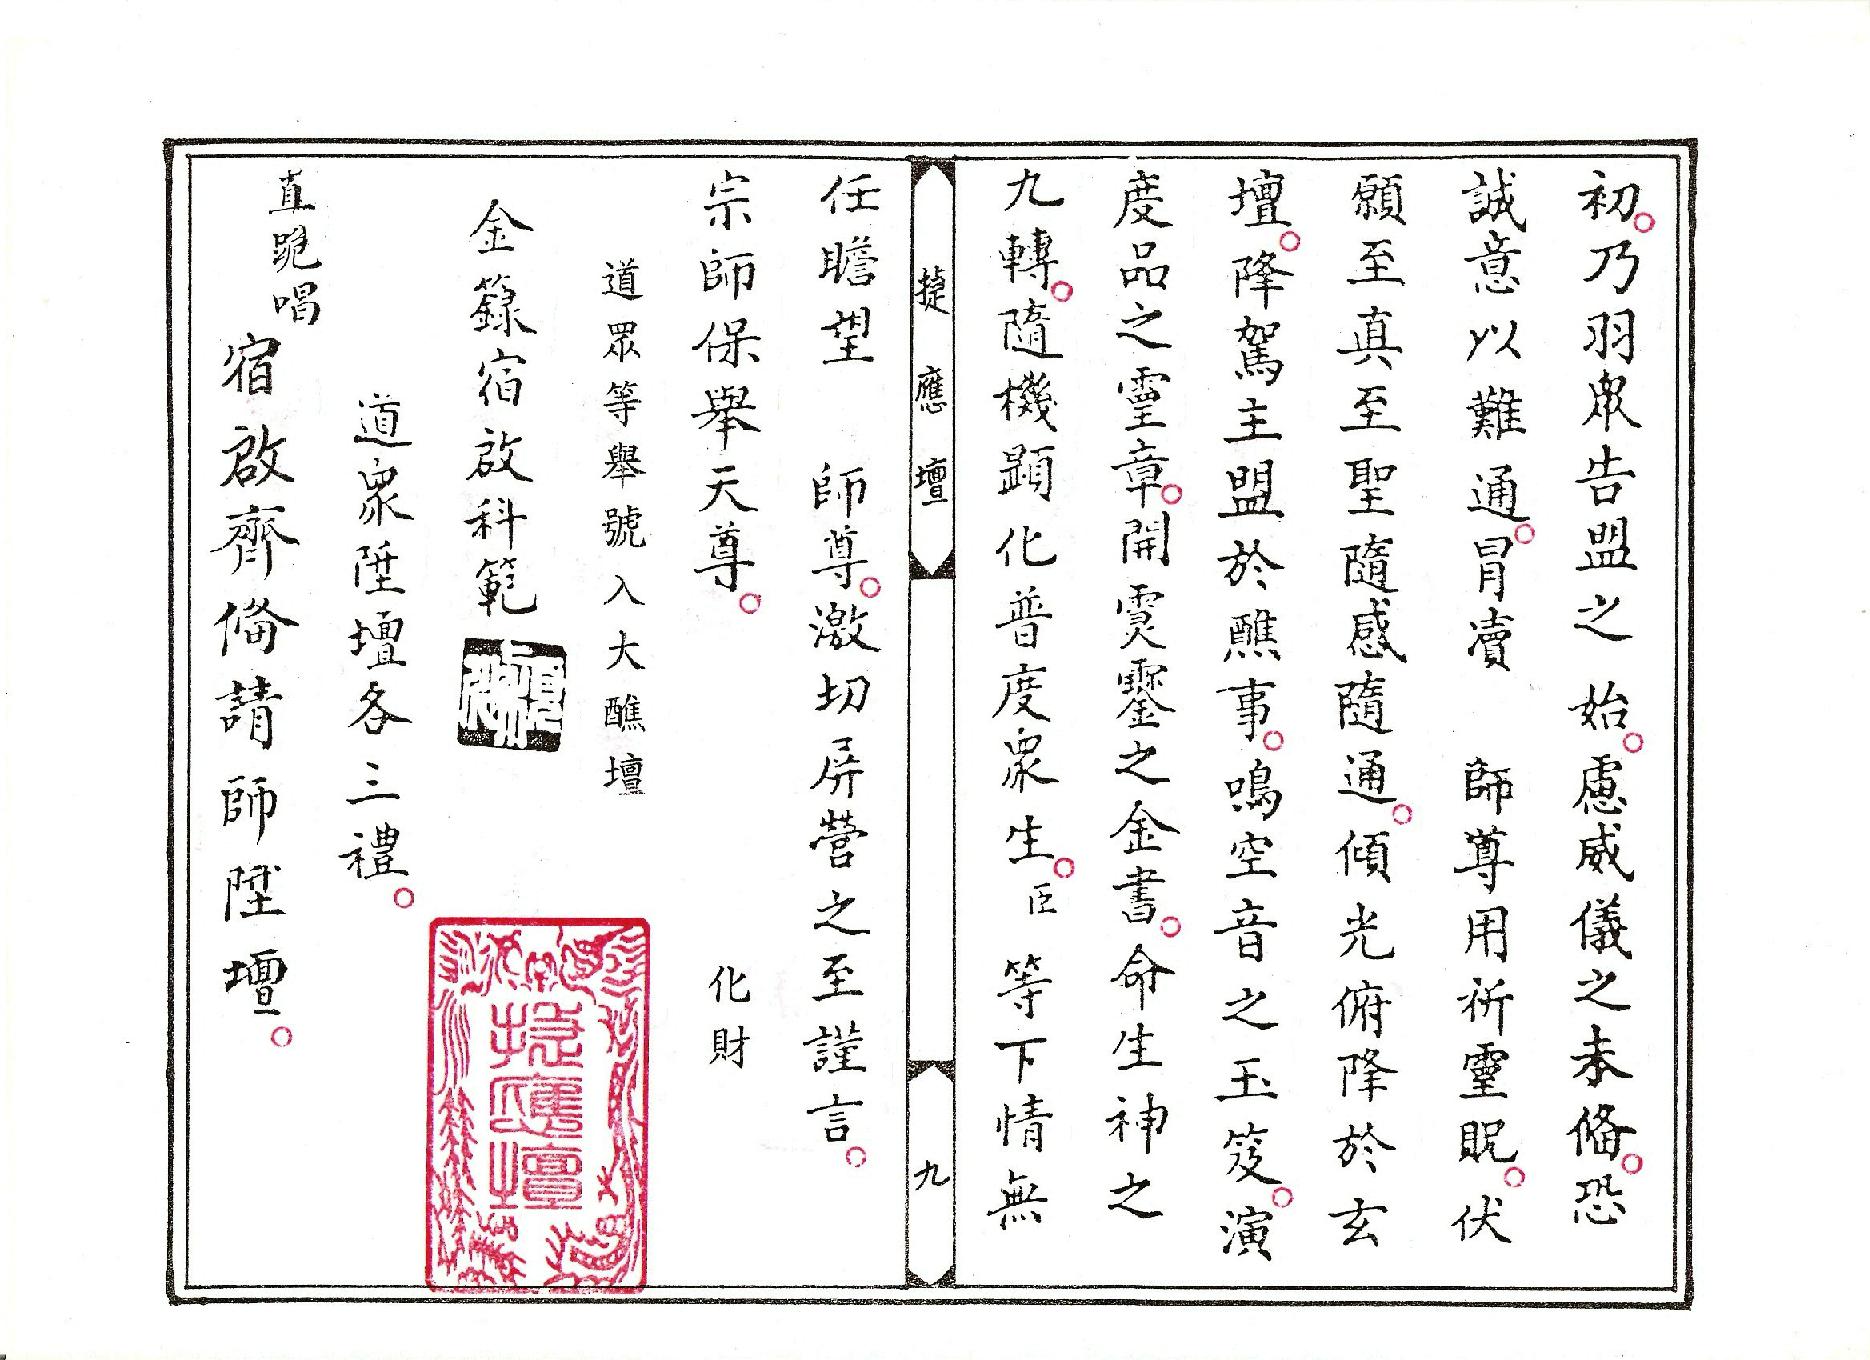 初。乃羽眾告盟之始。慮威儀之未偹。恐
誠意以難通。冒瀆　師尊用祈靈貺。伏
願至真至聖隨感隨通。傾光俯降於玄
壇。降駕主盟於醮事。鳴空音之玉笈。演
度品之靈章。開霐𩆜之金書。命生神之
九轉。隨機顕化普度眾生。臣等下情無
捷應壇
九
任瞻望　師尊。激切屏營之至謹言。
宗師保舉天尊。　化財
道眾等舉號入大醮壇
金籙宿啟科範
道眾陞壇各三禮。
直跪唱
宿啟齊偹請師陞壇。
捷應壇